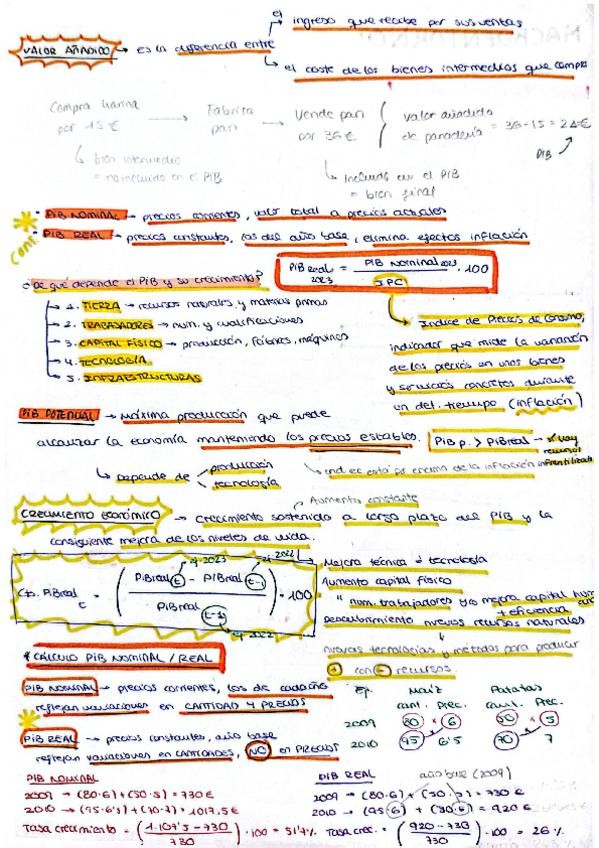 el
ingreso que recibe por sus ventas
VALOR AÑADIDO → es la diferencia entre
el coste de los bienes intermedios que compra
Compra harina por 15€ → Fabrica pan → Vende pan por 36€
valor añadido de panadería = 36-15 = 21€
PIB
↳ bien intermedio = no incluido en el PIB
↳ Incluido en el PIB = bien final
* PIB NOMINAL → precios corrientes, valor total a precios actuales
PIB REAL → precios constantes, los del año base, elimina efectos inflación
cont.
PIB real 2023 = PIB Nominal 2023 / IPC · 100
¿De qué depende el PIB y su crecimiento?
1. TIERRA → recursos naturales y materias primas
2. TRABAJADORES → num. y cualificaciones
3. CAPITAL FÍSICO → producción, fábricas, máquinas
4. TECNOLOGÍA
5. INFRAESTRUCTURAS
Indice de Precios de Consumo,
indicador que mide la variación
de los precios en unos bienes
y servicios concretos durante
un det. tiempo (inflación)
PIB POTENCIAL → Máxima producción que puede
alcanzar la economía manteniendo los precios estables.
PIB p. > PIB real → hay recursos
↳ Depende de producción
tecnología
está por encima de la inflación
Aumento constante
CRECIMIENTO ECONÓMICO → Crecimiento sostenido a largo plazo del PIB y la
consiguiente mejora de los niveles de vida.
ej. 2023
ej. 2022
Cto. PiB real t = ( PiB real t - PIB real t-1 / PIB real t-1 ) · 100
ej 2022
Mejora técnica o tecnología
Aumento capital físico
" num. trabajadores y/o mejora capital hum
+ eficiencia
Descubrimiento nuevos recursos naturales
nuevas tecnologías y métodos para producir
+ con - recursos.
* CÁLCULO PIB NOMINAL / REAL
PIB NOMINAL → precios corrientes, los de cada año
reflejan variaciones en CANTIDAD Y PRECIOS
* PIB REAL → precios constantes, año base
reflejan variaciones en CANTIDADES, NO en PRECIOS
Ej. Maíz Patatas
cant. Prec. cant. Prec.
2009 80 × 6 50 × 5
2010 95 6'5 70 7
PIB NOMINAL
2009 → (80·6) + (50·5) = 730€
2010 → (95·6'5) + (70·7) = 1017,5€
Tasa crecimiento = ( 1.107'5 - 730 / 730 ) · 100 = 51'7%
PIB REAL año base (2009)
2009 → (80·6) + (50·5) = 730€
2010 → (95·6) + (70·5) = 920€
Tasa crec. = ( 920 - 730 / 730 ) · 100 = 26%